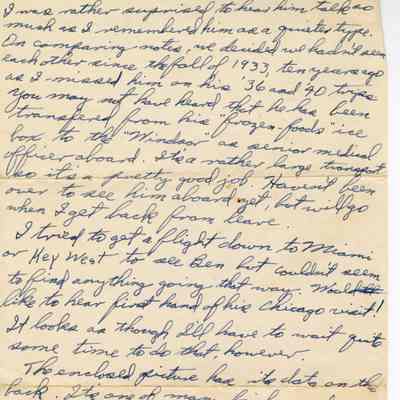 I was rather surprised to hear him talk so
much as I remembered him as a quieter type.
On comparing notes, we decided we hadn't seen
each other since the fall of 1933, ten years ago
as I missed him on his '36 and '40 trips
You may not have heard that he has been
transfered from his "frozen-foods" ice
box to the "Windsor" as senior medical
officer aboard. Its a rather large transport
so it's a pretty good job. Haven't been
over to see him aboard yet, but will go
when I get back from leave.
I tried to get a flight down to Miami
or Key West to see Ben but couldn't seem
to find anything going that way. Would
like to hear first hand of his Chicago visit!
It looks as though I'll have to wait quite
some time to do that, however.
The enclosed picture has its data on the
back. Its one of many